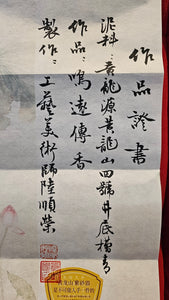 作品證書
泥料:黃龍源黃龍山四號井底槽青
作品:鳴遠傳香
製作:工藝美術師陸順榮